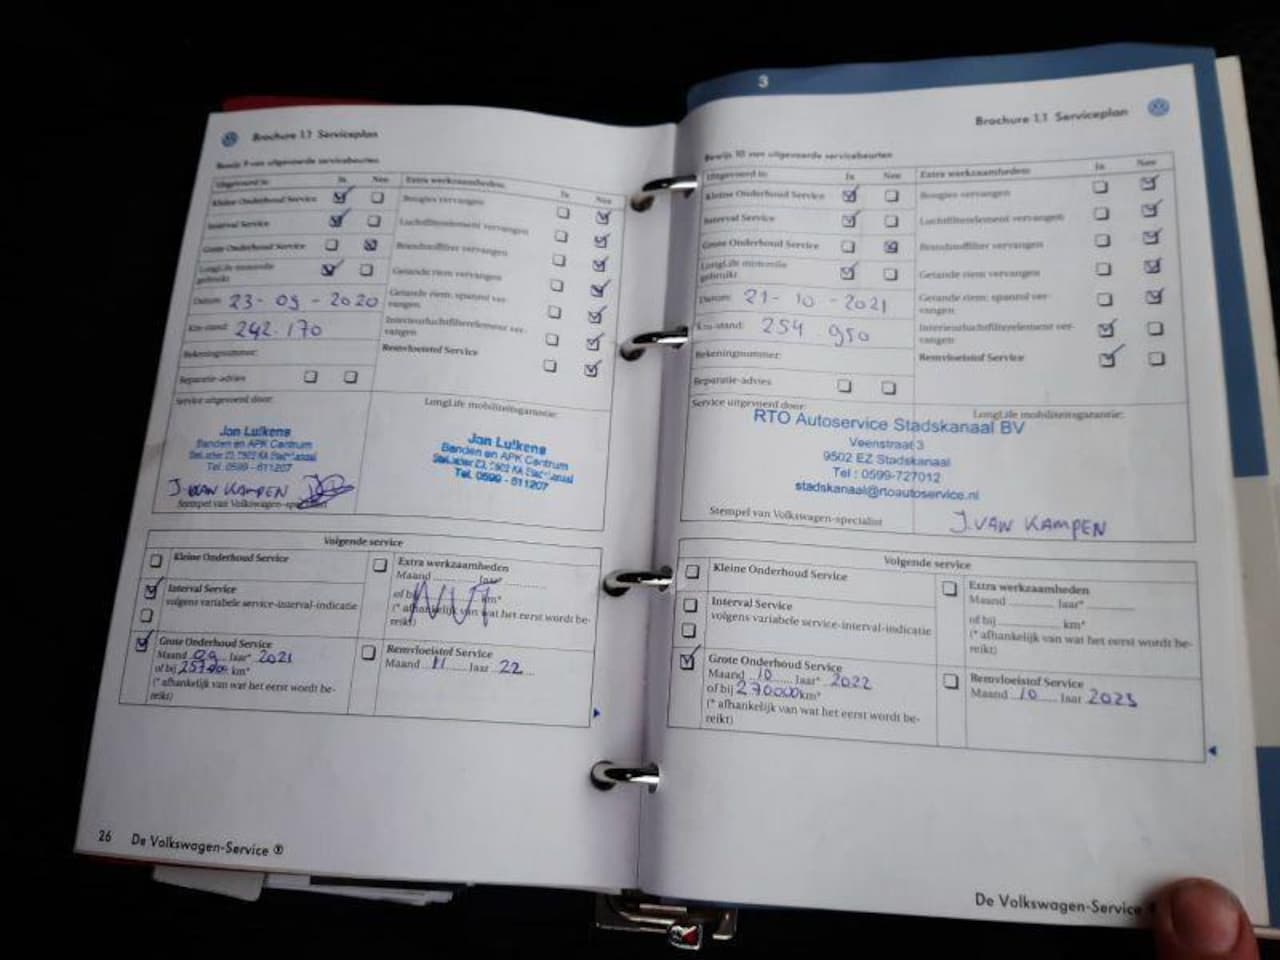 Brochure 1.1 Serviceplan
Bewijs 9 van uitgevoerde servicebeurten
Uitgevoerd in: Ja Nee Extra werkzaamheden: Ja Nee
Kleine Onderhoud Service
Interval Service
Grote Onderhoud Service
LongLife motorolie gebruikt
Datum: 23-09-2020
Km-stand: 242.170
Rekeningnummer:
Reparatie-advies
Bougies vervangen
Luchtfilterelement vervangen
Brandstoffilter vervangen
Getande riem vervangen
Getande riem: spanrol ver-
vangen
Interieurluchtfilterelement ver-
vangen
Remvloeistof Service
Service uitgevoerd door:
Jan Luikens
Banden en APK Centrum
Tel. 0599 - 611207
J. VAN KAMPEN
Stempel van Volkswagen-specialist
LongLife mobiliteitsgarantie:
Jan Luikens
Banden en APK Centrum
Tel. 0599 - 611207
Volgende service
Kleine Onderhoud Service
Interval Service
volgens variabele service-interval-indicatie
Grote Onderhoud Service
Maand 09 Jaar* 2021
of bij km*
(* afhankelijk van wat het eerst wordt be-
reikt)
Extra werkzaamheden
Maand Jaar*
of bij km*
(* afhankelijk van wat het eerst wordt be-
reikt)
Remvloeistof Service
Maand 11 Jaar 22
26 De Volkswagen-Service ®
3
Brochure 1.1 Serviceplan
Bewijs 10 van uitgevoerde servicebeurten
Uitgevoerd in: Ja Nee Extra werkzaamheden: Ja Nee
Kleine Onderhoud Service
Interval Service
Grote Onderhoud Service
LongLife motorolie
gebruikt
Datum: 21-10-2021
Km-stand: 254 950
Rekeningnummer:
Reparatie-advies
Bougies vervangen
Luchtfilterelement vervangen
Brandstoffilter vervangen
Getande riem vervangen
Getande riem: spanrol ver-
vangen
Interieurluchtfilterelement ver-
vangen
Remvloeistof Service
Service uitgevoerd door:
LongLife mobiliteitsgarantie:
RTO Autoservice Stadskanaal BV
Veenstraat 3
9502 EZ Stadskanaal
Tel : 0599-727012
stadskanaal@rtoautoservice.nl
Stempel van Volkswagen-specialist
J. VAN KAMPEN
Volgende service
Kleine Onderhoud Service
Interval Service
volgens variabele service-interval-indicatie
Grote Onderhoud Service
Maand 10 Jaar* 2022
of bij 270000 km*
(* afhankelijk van wat het eerst wordt be-
reikt)
Extra werkzaamheden
Maand Jaar*
of bij km*
(* afhankelijk van wat het eerst wordt be-
reikt)
Remvloeistof Service
Maand 10 Jaar 2023
De Volkswagen-Service